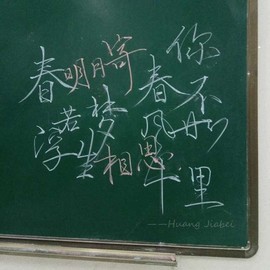 你
春明月寄春不
若梦风如
浮生相思十里
——Huang Jiabei